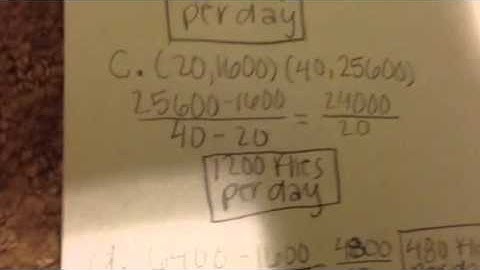 per day
C. (20,1600) (40,25600)
25600-1600 = 24000
40-20 20
1200 flies
per day
d. 6400-1600 4800 480 flies